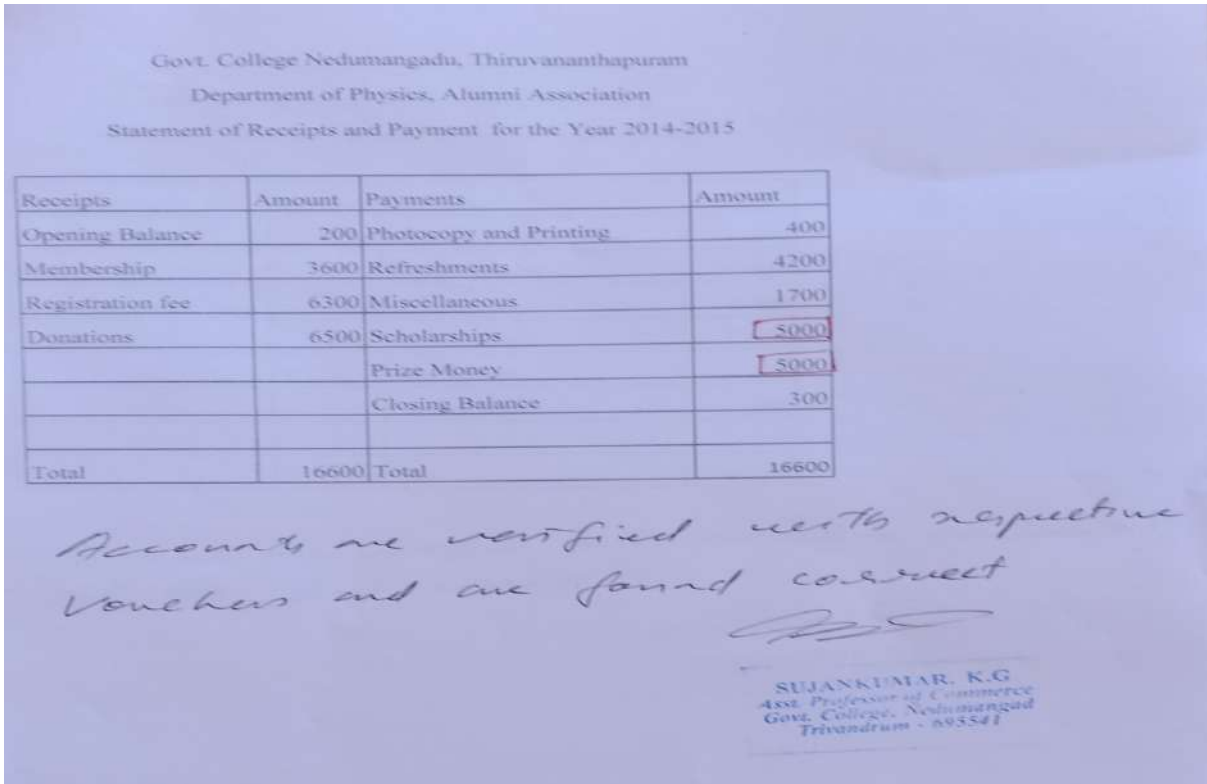 Govt. College Nedumangadu, Thiruvananthapuram
Department of Physics, Alumni Association
Statement of Receipts and Payment for the Year 2014-2015
Receipts Amount Payments Amount
Opening Balance 200 Photocopy and Printing 400
Membership 3600 Refreshments 4200
Registration fee 6300 Miscellaneous 1700
Donations 6500 Scholarships 5000
Prize Money 5000
Closing Balance 300
Total 16600 Total 16600
Accounts are verified with respective
Vouchers and are found correct
SUJANKUMAR. K.G
Asst. Professor of Commerce
Govt. College, Nedumangad
Trivandrum - 695541